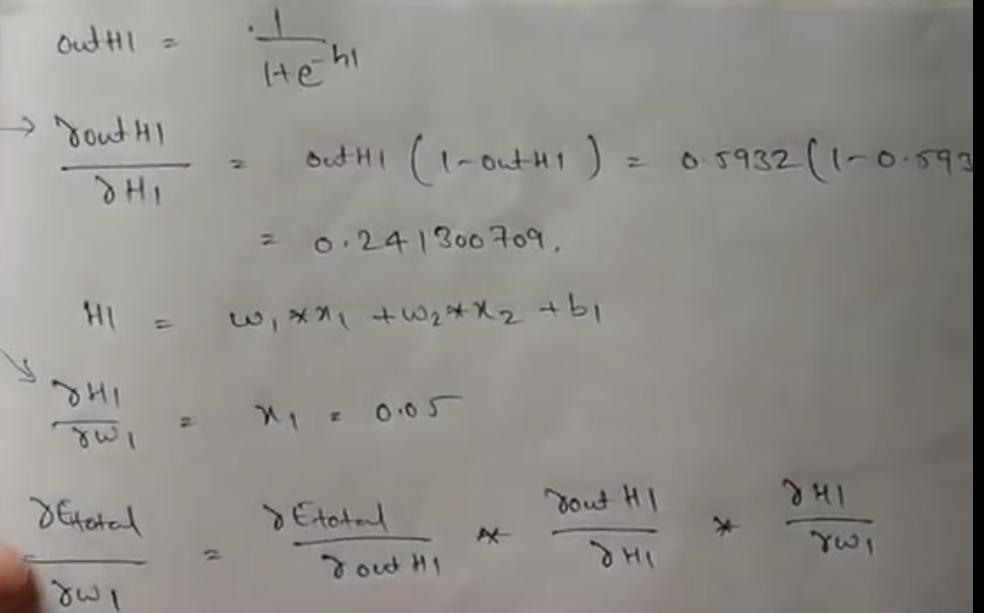 outH1 = 1 / (1+e^-h1)
→ ∂outH1 / ∂H1 = outH1 (1-outH1) = 0.5932(1-0.593
= 0.241300709.
H1 = w₁*x₁ + w₂*x₂ + b₁
↘ ∂H1 / ∂w₁ = x₁ = 0.05
∂Etotal / ∂w₁ = ∂Etotal / ∂outH1 * ∂outH1 / ∂H1 * ∂H1 / ∂w₁